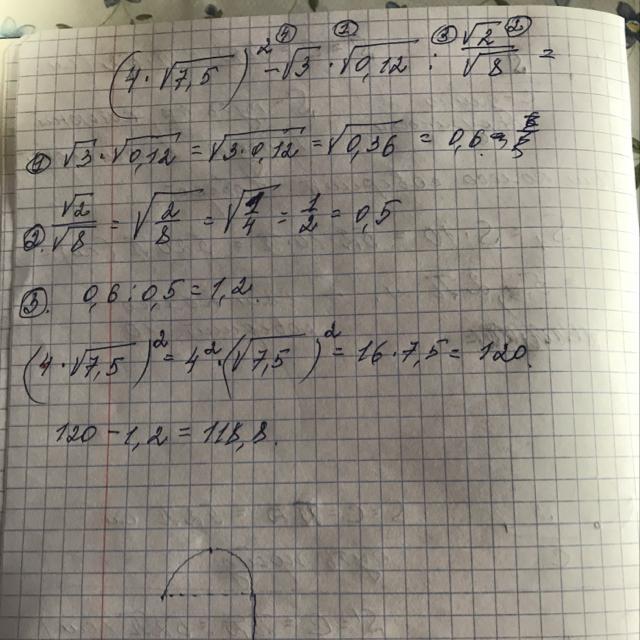 (4·√7,5)² ④ - √3 ① · √0,12 ③ : √2/√8 ② =
① √3·√0,12 = √3·0,12 = √0,36 = 0,6
②. √2/√8 = √2/8 = √1/4 = 1/2 = 0,5
③. 0,6 : 0,5 = 1,2.
(4·√7,5)² = 4²·(√7,5)² = 16·7,5 = 120.
120 - 1,2 = 118,8.